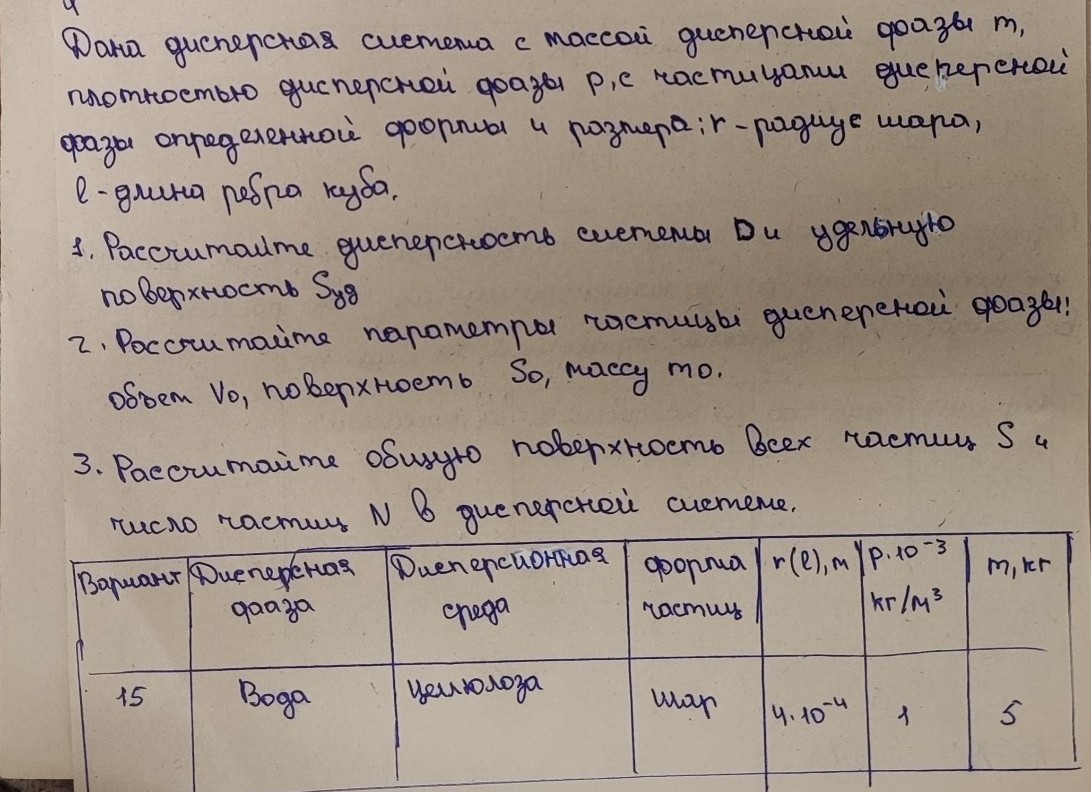 Дана дисперсная система с массой дисперсной фазы m,
плотностью дисперсной фазы ρ, с частицами дисперсной
фазы определенной формы и размера: r - радиус шара,
l - длина ребра куба.
1. Рассчитайте дисперсность системы D и удельную
поверхность Sуд
2. Рассчитайте параметры частицы дисперсной фазы:
объем V0, поверхность S0, массу m0.
3. Рассчитайте общую поверхность всех частиц S и
число частиц N в дисперсной системе.
Вариант Дисперсная Дисперсионная форма r(l), м ρ·10⁻³ m, кг
фааза среда частиц кг/м³
15 Вода целлюлоза шар 4·10⁻⁴ 1 5